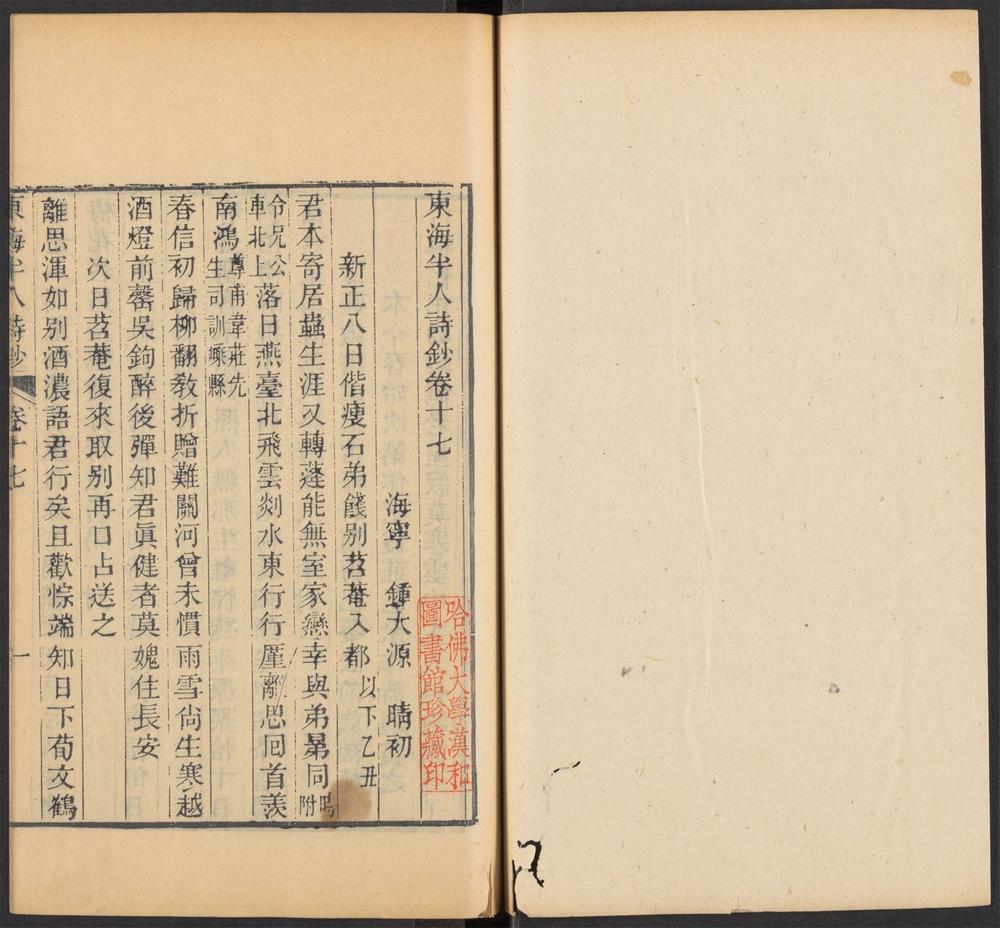 東海半人詩鈔卷十七
海寧　鍾大源　晴初
新正八日偕瘦石弟餞别苕菴入都以下乙丑
君本寄居蟲生涯又轉蓬能無室家戀幸與弟晜同時附
令兄公車北上落日燕臺北飛雲剡水東行行厪離思回首羨
南鴻尊甫韋莊先生司訓嵊縣
春信初歸柳翻教折贈難關河曾未慣雨雪尙生寒越
酒燈前罄吳鉤醉後彈知君眞健者莫媿住長安
次日苕菴復來取别再口占送之
離思渾如别酒濃語君行矣且歡悰端知日下荀文鶴
東海半人詩鈔　卷十七　一
哈佛大學漢和圖書館珍藏印